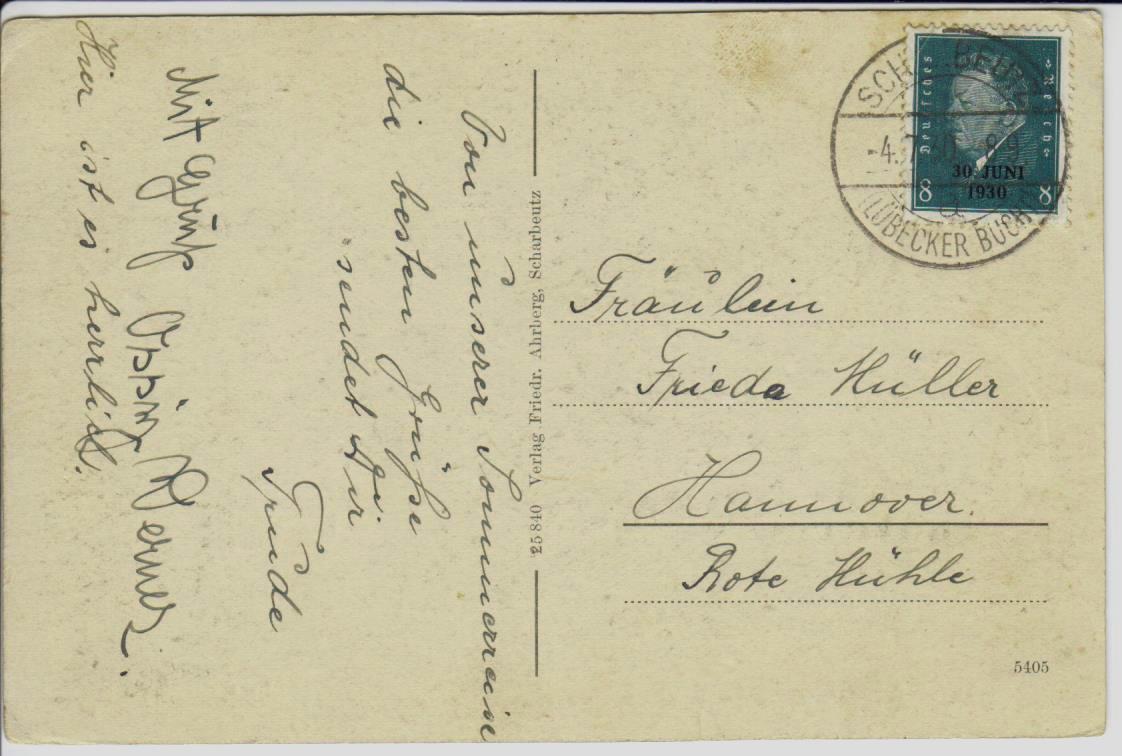 Von unserer Sommerreise
die besten Grüße
sendet Dir
Trude
Mit Gruß Werner.
Hier ist es herrlich.
25840 Verlag Friedr. Ahrberg, Scharbeutz
Deutsches Reich
8 8
30. JUNI
1930
SCH BEUTZ
-4.7.30. 8-9
a
(LÜBECKER BUCHT
Fräulein
Frieda Müller
Hannover.
Rote Mühle
5405